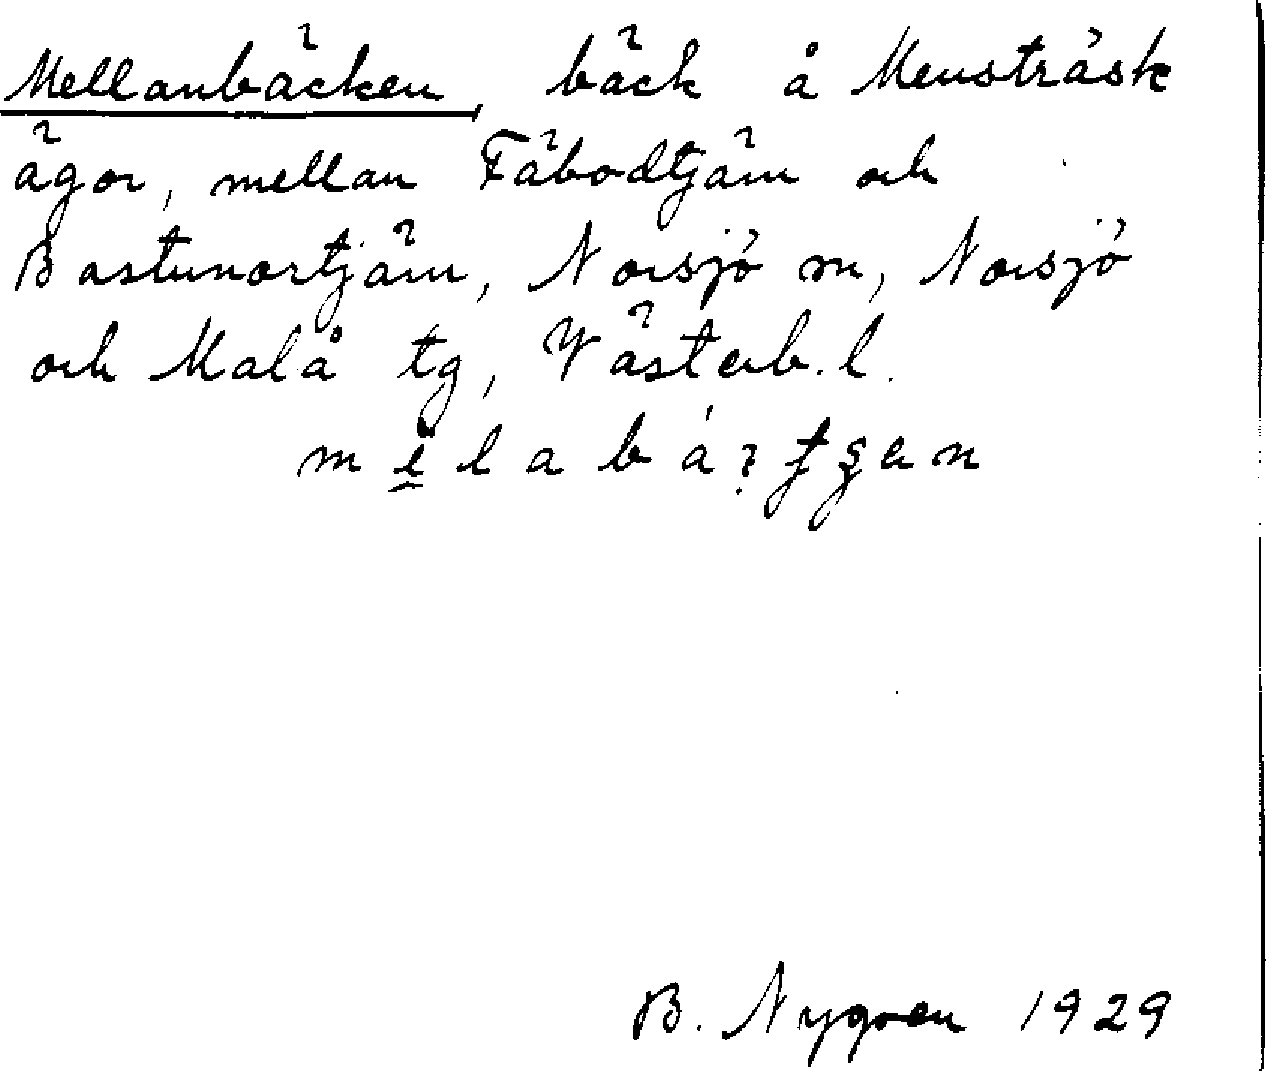 Mellanbäcken, bäck å Mensträsk
ägor, mellan Fäbodtjärn och
Bastunortjärn, Norsjö sn, Norsjö
och Malå tg, Västerb. l.
B. Nygren 1929